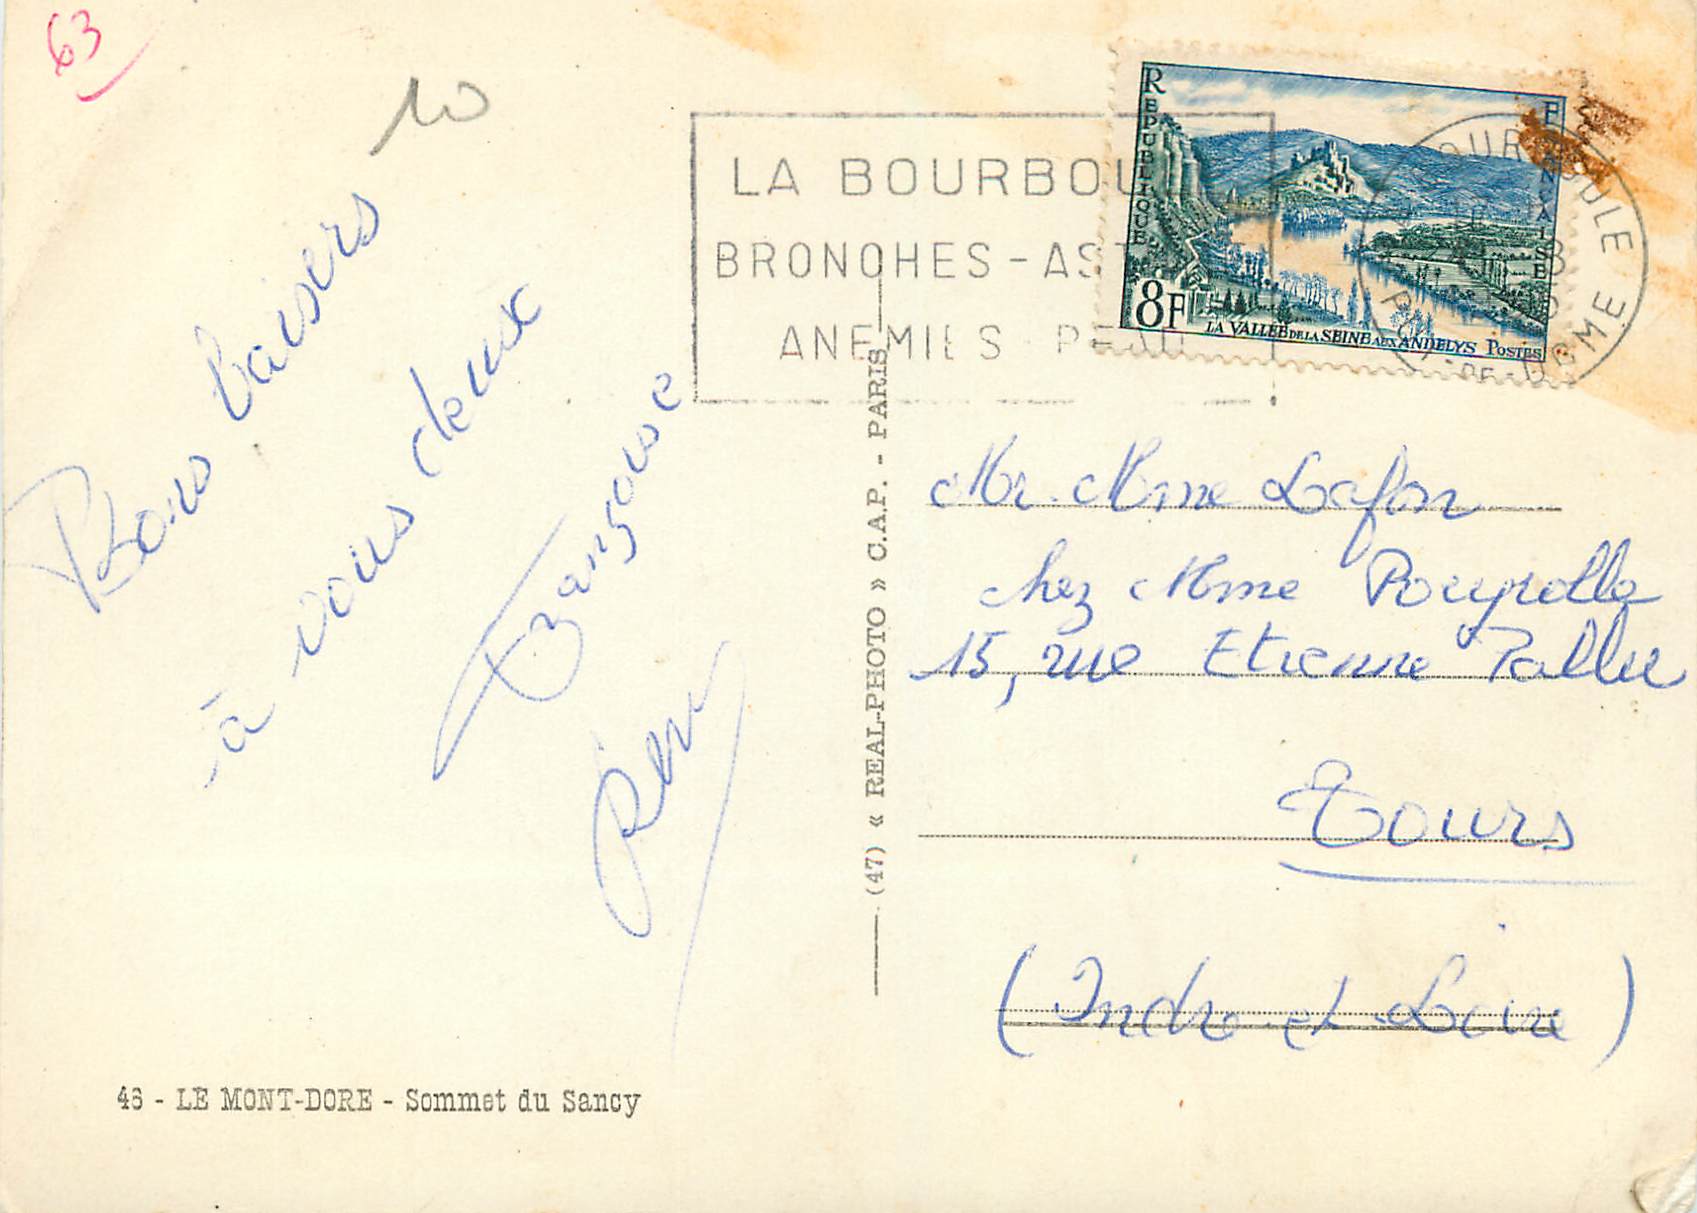 63
10
Bons baisers
à vous deux
Françoise
Rémy
46 - LE MONT-DORE - Sommet du Sancy
(47) « REAL-PHOTO » C.A.P. - PARIS
LA BOURBOU
BRONCHES - AST
ANEMIES - PEAU
REPUBLIQUE FRANÇAISE
8F
LA VALLÉE DE LA SEINE AUX ANDELYS POSTES
OURBOULE
PUY-DE-DOME
Mr. Mme Lafon
chez Mme Pouyrolle
15, rue Etienne Pallu
Tours
(Indre et Loire)